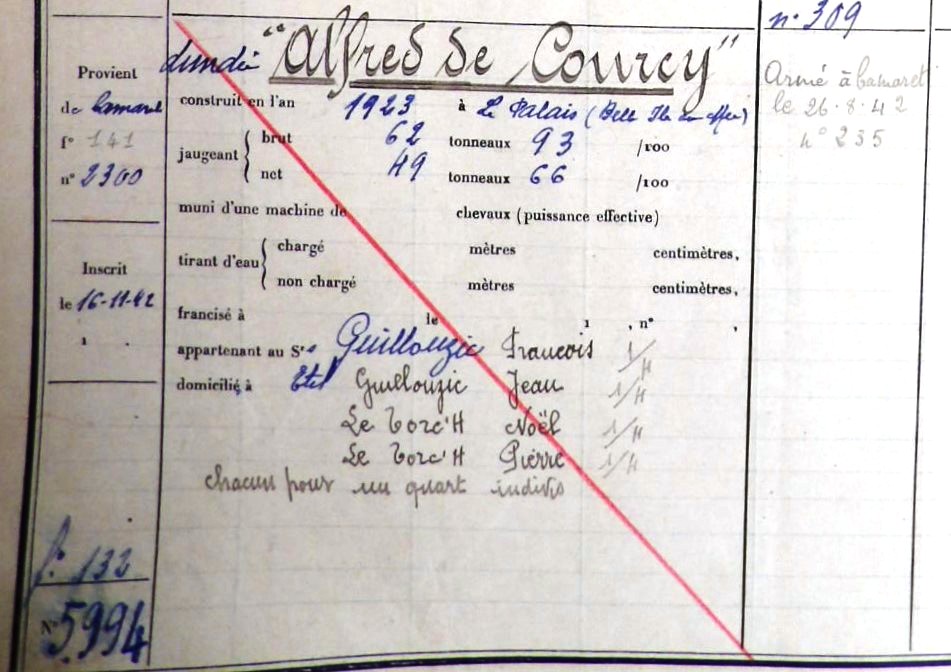 n° 309
dundée "Alfred de Courcy"
Provient
de Camaret
f° 141
n° 2300
construit en l'an 1923 à Le Palais (Belle Ile en Mer)
jaugeant { brut 62 tonneaux 93 /100
net 49 tonneaux 66 /100
muni d'une machine de chevaux (puissance effective)
tirant d'eau { chargé mètres centimètres,
non chargé mètres centimètres,
Inscrit
le 16-11-42
francisé à le 1 , n° ,
appartenant au Srs Guillouzic Francois 1/4
domicilié à Etel Guillouzic Jean 1/4
Le Torc'H Noël 1/4
Le Torc'H Pierre 1/4
chacun pour un quart indivis
f° 132
N° 5994
Armé à Camaret
le 26-8-42
n° 235